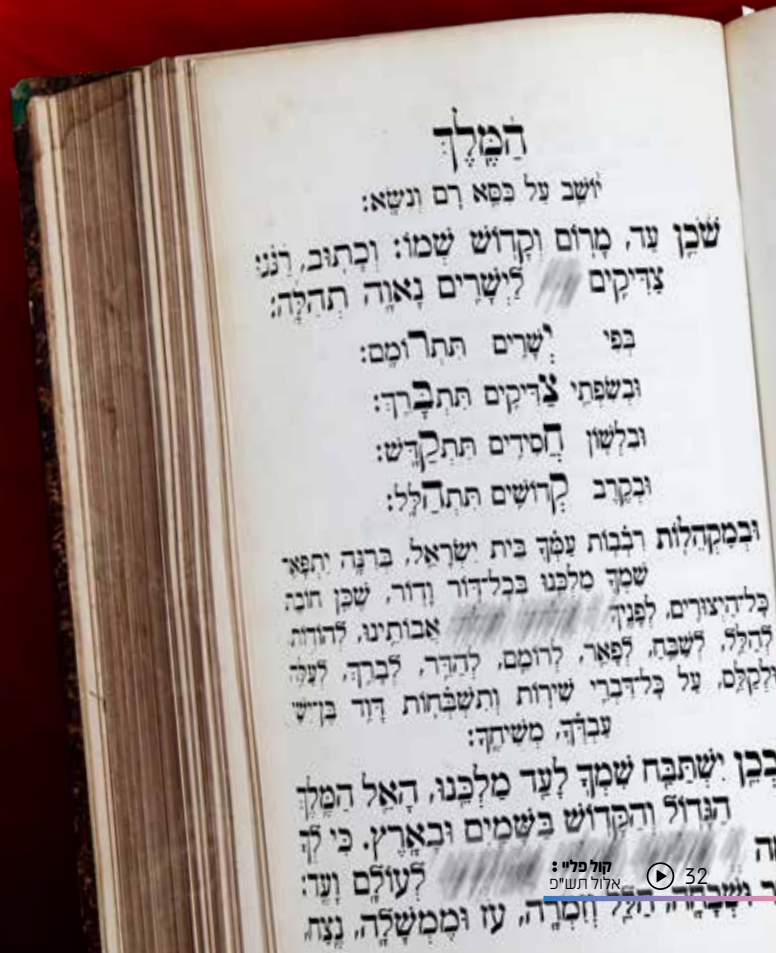 הַמֶּלֶךְ
יוֹשֵׁב עַל כִּסֵּא רָם וְנִשָּׂא:
שֹׁכֵן עַד, מָרוֹם וְקָדוֹשׁ שְׁמוֹ: וְכָתוּב, רַנְּנוּ
צַדִּיקִים לַיְשָׁרִים נָאוָה תְהִלָּה:
בְּפִי יְשָׁרִים תִּתְרוֹמָם:
וּבְשִׂפְתֵי צַדִּיקִים תִּתְבָּרַךְ:
וּבִלְשׁוֹן חֲסִידִים תִּתְקַדָּשׁ:
וּבְקֶרֶב קְדוֹשִׁים תִּתְהַלָּל:
וּבְמַקְהֲלוֹת רִבְבוֹת עַמְּךָ בֵּית יִשְׂרָאֵל, בְּרִנָּה יִתְפָּאֵ
שִׁמְךָ מַלְכֵּנוּ בְּכָל־דּוֹר וָדוֹר, שֶׁכֵּן חוֹבַת
כָּל־הַיְצוּרִים, לְפָנֶיךָ אֲבוֹתֵינוּ, לְהוֹדוֹת,
לְהַלֵּל, לְשַׁבֵּחַ, לְפָאֵר, לְרוֹמֵם, לְהַדֵּר, לְבָרֵךְ, לְעַלֵּה
וּלְקַלֵּס, עַל כָּל־דִּבְרֵי שִׁירוֹת וְתִשְׁבְּחוֹת דָּוִד בֶּן־יִשַׁ
עַבְדְּךָ, מְשִׁיחֶךָ:
בְכֵן יִשְׁתַּבַּח שִׁמְךָ לָעַד מַלְכֵּנוּ, הָאֵל הַמֶּלֶךְ
הַגָּדוֹל וְהַקָּדוֹשׁ בַּשָּׁמַיִם וּבָאָרֶץ. כִּי לְךָ
לְעוֹלָם וָעֶד:
וּשְׁבָחָה, הַלֵּל וְזִמְרָה, עֹז וּמֶמְשָׁלָה, נֶצַח,
קול פליי: 32
אלול תש"פ